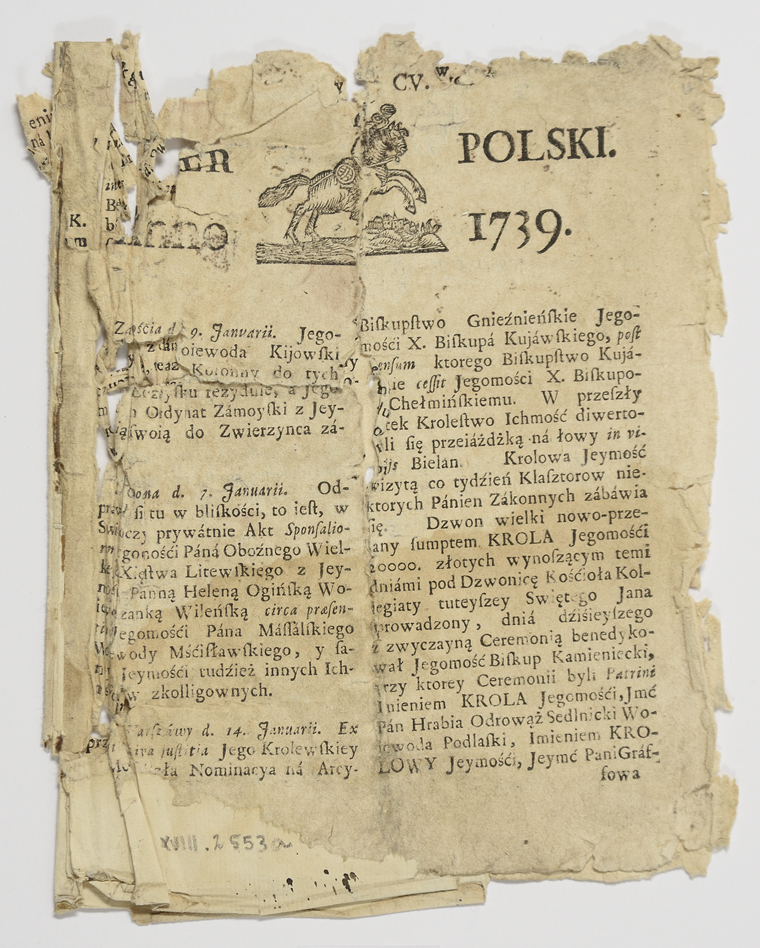 CV.
ER POLSKI.
Anno 1739.
K.
Zaśćia d. 9. Januarii. Jego-
oiewoda Kijowski
Kolonny do tych
rezyduie, a Jego
Ordynat Zamoyſki z Jey-
ſwoią do Zwierzynca zá-
d. 7. Januarii. Od-
ſi tu w bliſkośći, to ieſt, w
czy prywátnie Akt Sponſalio-
egomośći Páná Oboźnego Wiel-
Xięſtwa Litewſkiego z Jey-
Pánną Heleną Ogińſką Wo-
zanką Wileńſką circa præſen-
egomośći Pána Máſſálſkiego
wody Mśćiſławſkiego, y ſa-
Jeymośći tudzież innych Ich-
w zkolligownych.
d. 14. Januarii. Ex
juſtitia Jego Krolewſkiey
Nominacya ná Arcy-
Biſkupſtwo Gnieźnieńſkie Jego-
mości X. Biſkupá Kujáwſkiego, poſt
ktorego Biſkupſtwo Kujá-
ceſſit Jegomości X. Biſkupo-
Chełmińſkiemu. W przeſzły
Kroleſtwo Ichmość diwerto-
li ſię przeiáżdżką ná łowy in vi-
Bielan. Krolowa Jeymość
wizytą co tydzień Klaſztorow nie-
ktorych Pánien Zákonnych zábáwia
ſię. Dzwon wielki nowo-prze-
any ſumptem KROLA Jegomośći
20000. złotych wynoſzącym temi
dniámi pod Dzwonicę Kośćioła Kol-
legiaty tuteyſzey Swiętego Jana
prowadzony, dniá dźiśieyſzego
z zwyczayną Ceremonią benedyko-
wał Jegomość Biſkup Kamieniecki,
przy ktorey Ceremonii byli Patrini
Imieniem KROLA Jegomośći, Jmć
Pán Hrabia Odrowąż Sedlnicki Wo-
iewoda Podlaſki, Imieniem KRO-
LOWY Jeymośći, Jeymć Pani Gráf-
fowa
XVIII.2553